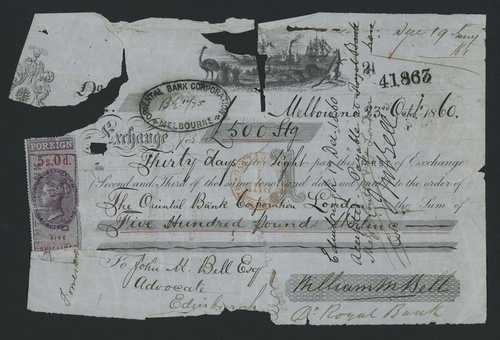 Due 19 Jany
No
ORIENTAL BANK CORPORATION
MELBOURNE
41863
Melbourne 23rd Octr 1860.
Exchange for £500 Stg
FOREIGN
5s. 0d.
Thirty days after sight pay this of Exchange
(Second and Third of the same tenor and date not paid) to the order of
The Oriental Bank Corporation London the Sum of
Five Hundred Pounds Sterling
FIVE
To John M. Bell Esq
Advocate
Edinburgh
William M Bell
Pr Royal Bank
Edinburgh 17 Dec 1860
Accepted Payable at Royal Bank
J M Bell